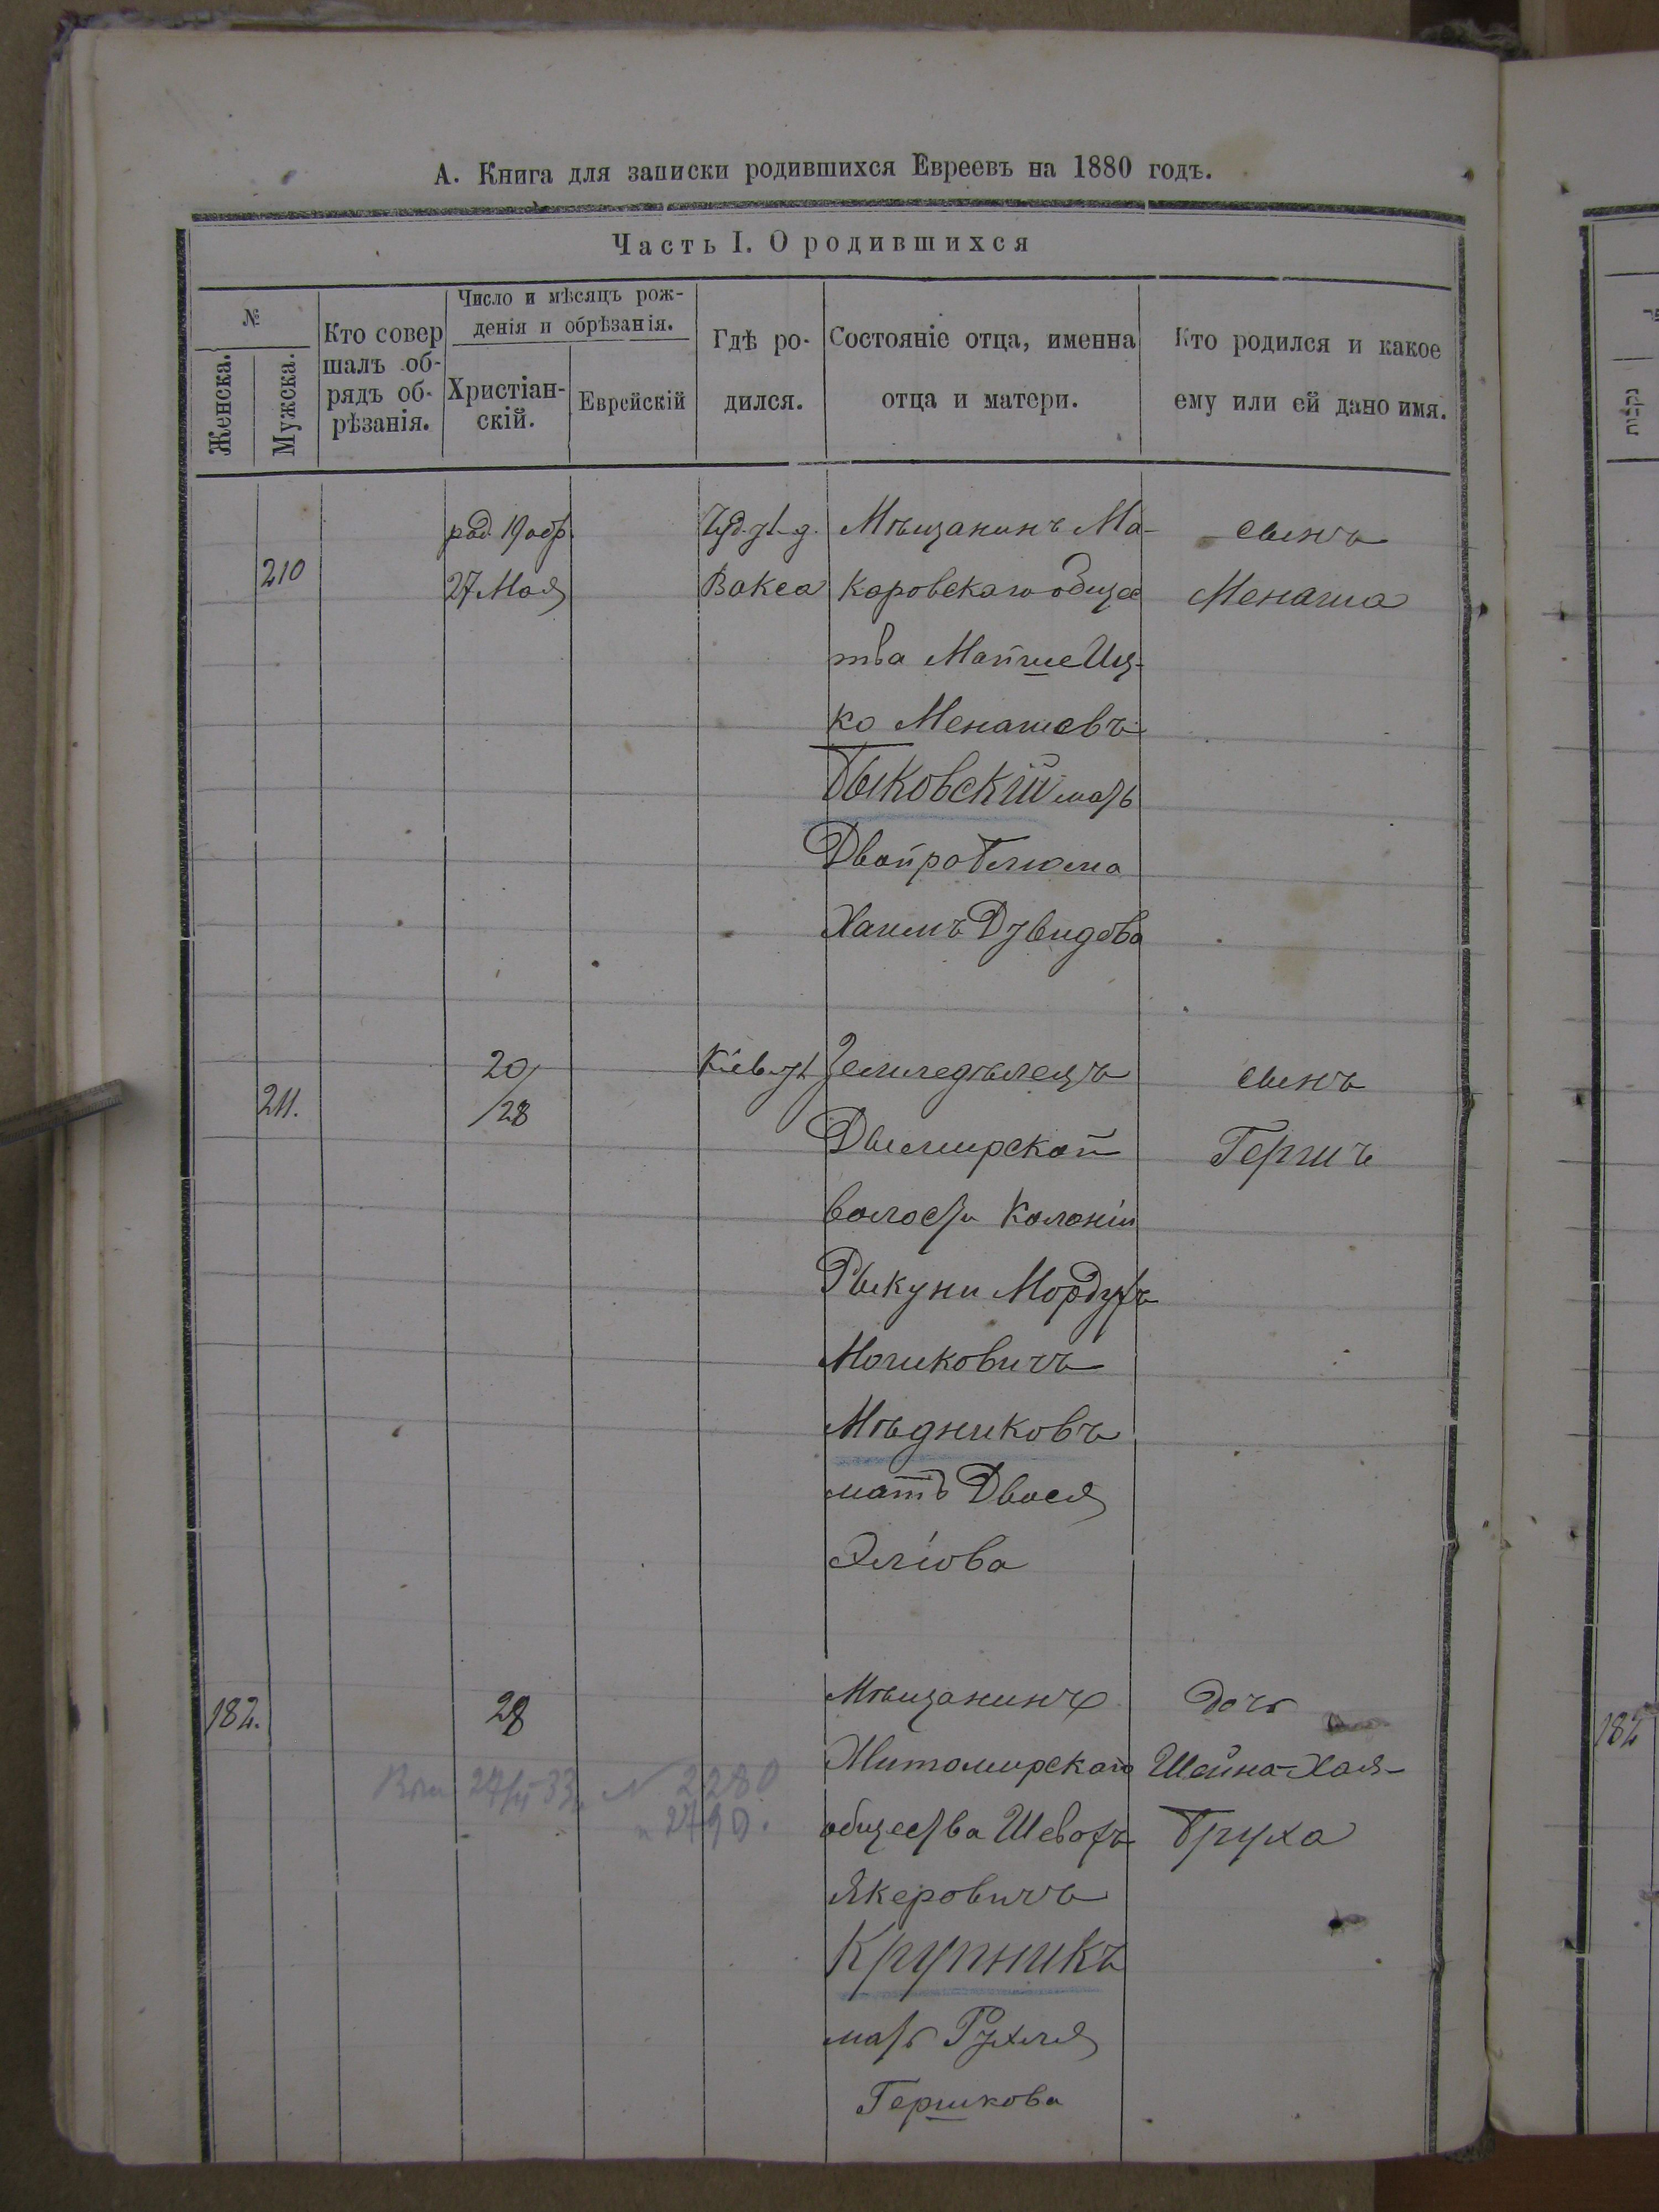 А. Книга для записки родившихся Евреевъ на 1880 годъ.
Часть I. О родившихся
№
Женска.
Мужска.
Кто совер
шалъ об-
рядъ об-
рѣзанія.
Число и мѣсяцъ рож-
денія и обрѣзанія.
Христіан-
скій.
Еврейскій
Гдѣ ро-
дился.
Состояніе отца, именна
отца и матери.
Кто родился и какое
ему или ей дано имя.
210
род. 19 обр.
27 Мая
Вакса
Мѣщанинъ Ма-
каровскаго общес
тва Мойше Иц-
ко Менашевъ
Быковскій мать
Двойра Блюма
Хаимъ Дувидова
сынъ
Менаша
211.
20/
/28
Кіев.
Земледѣлецъ
Дымирской
волости Колоніи
Рыкуни Мордухъ
Мошковичъ
Мѣдниковъ
мать Двося
Эліова
сынъ
Гершъ
182.
28
27/II 33 N 2280
2490.
Мѣщанинъ
Житомирскаго
общества Шевахъ
Якеровичъ
Крупникъ
мать Рухля
Гершкова
дочь
Шейна-Хая-
Бруха
182